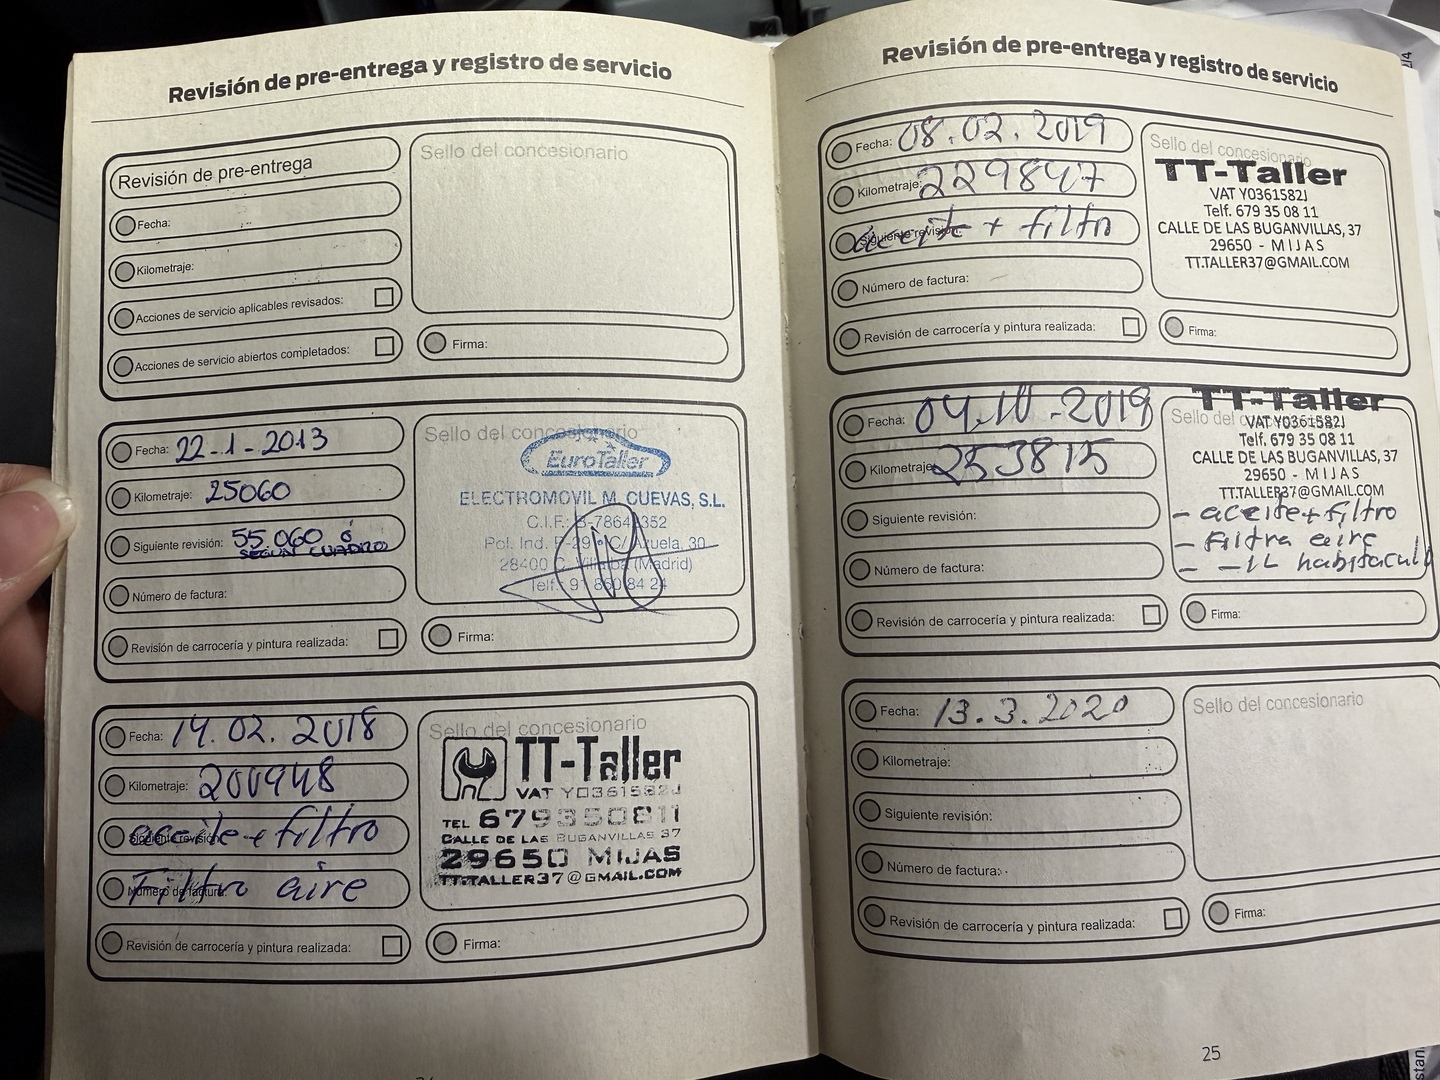 Revisión de pre-entrega y registro de servicio
Revisión de pre-entrega
Fecha:
Kilometraje:
Acciones de servicio aplicables revisados:
Acciones de servicio abiertos completados:
Sello del concesionario
Firma:
Fecha: 22-1-2013
Kilometraje: 25060
Siguiente revisión: 55.060 ó
SEGUN CUADRO
Número de factura:
Revisión de carrocería y pintura realizada:
Sello del concesionario
EuroTaller
ELECTROMOVIL M. CUEVAS, S.L.
C.I.F.:
Pol. Ind. P-29 • C/ Azuela, 30
28400 C. Villalba (Madrid)
Telf.: 91 850 84 24
Firma:
Fecha: 14.02.2018
Kilometraje: 200948
Siguiente revisión: aceite + filtro
Número de factura: Filtro aire
Revisión de carrocería y pintura realizada:
Sello del concesionario
TT-Taller
VAT Y0361582J
TEL 679350811
CALLE DE LAS BUGANVILLAS 37
29650 MIJAS
TT.TALLER37@GMAIL.COM
Firma:
Revisión de pre-entrega y registro de servicio
Fecha: 08.02.2019
Kilometraje: 229847
Siguiente revisión: aceite + filtro
Número de factura:
Revisión de carrocería y pintura realizada:
Sello del concesionario
TT-Taller
VAT Y0361582J
Telf. 679 35 08 11
CALLE DE LAS BUGANVILLAS, 37
29650 - MIJAS
TT.TALLER37@GMAIL.COM
Firma:
Fecha: 04.10.2019
Kilometraje: 253815
Siguiente revisión:
Número de factura:
Revisión de carrocería y pintura realizada:
TT-Taller
Sello del
VAT Y0361582J
Telf. 679 35 08 11
CALLE DE LAS BUGANVILLAS, 37
29650 - MIJAS
TT.TALLER37@GMAIL.COM
- aceite + filtro
- filtra aire
- -IL habitaculo
Firma:
Fecha: 13.3.2020
Kilometraje:
Siguiente revisión:
Número de factura:
Revisión de carrocería y pintura realizada:
Sello del concesionario
Firma:
25